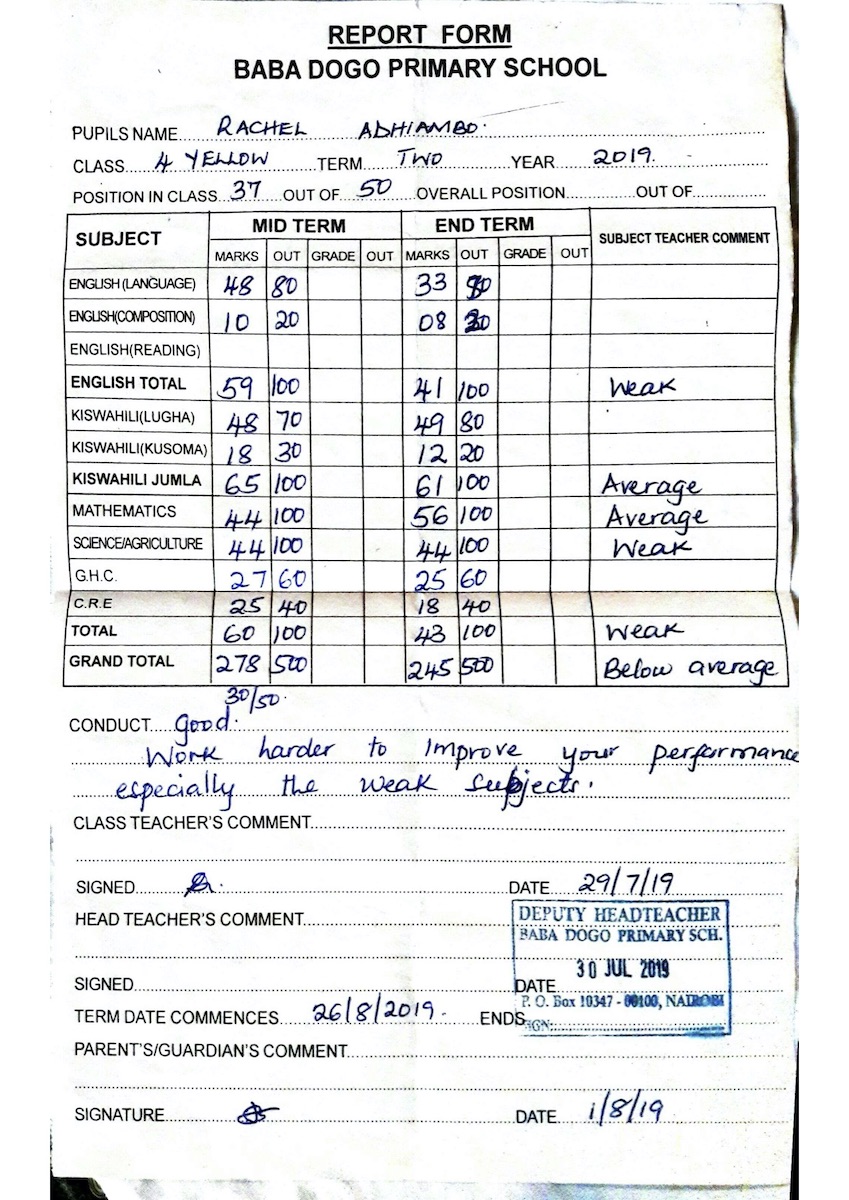 REPORT FORM
BABA DOGO PRIMARY SCHOOL
PUPILS NAME RACHEL ADHIAMBO.
CLASS 4 YELLOW TERM TWO YEAR 2019.
POSITION IN CLASS 37 OUT OF 50 OVERALL POSITION OUT OF
SUBJECT MID TERM END TERM SUBJECT TEACHER COMMENT
MARKS OUT GRADE OUT MARKS OUT GRADE OUT
ENGLISH (LANGUAGE) 48 80 33
ENGLISH(COMPOSITION) 10 20 08
ENGLISH(READING)
ENGLISH TOTAL 59 100 41 100 Weak
KISWAHILI(LUGHA) 48 70 49 80
KISWAHILI(KUSOMA) 18 30 12 20
KISWAHILI JUMLA 65 100 61 100 Average
MATHEMATICS 44 100 56 100 Average
SCIENCE/AGRICULTURE 44 100 44 100 Weak
G.H.C. 27 60 25 60
C.R.E 25 40 18 40
TOTAL 60 100 43 100 Weak
GRAND TOTAL 278 500 245 500 Below average
30/50.
CONDUCT Good.
Work harder to improve your performance
especially the weak subjects.
CLASS TEACHER'S COMMENT
SIGNED DATE 29/7/19
HEAD TEACHER'S COMMENT
DEPUTY HEADTEACHER
BABA DOGO PRIMARY SCH.
30 JUL 2019
SIGNED DATE
P. O. Box 10347 - 00100, NAIROBI
TERM DATE COMMENCES 26/8/2019. ENDS
SIGN:
PARENT'S/GUARDIAN'S COMMENT
SIGNATURE DATE 1/8/19